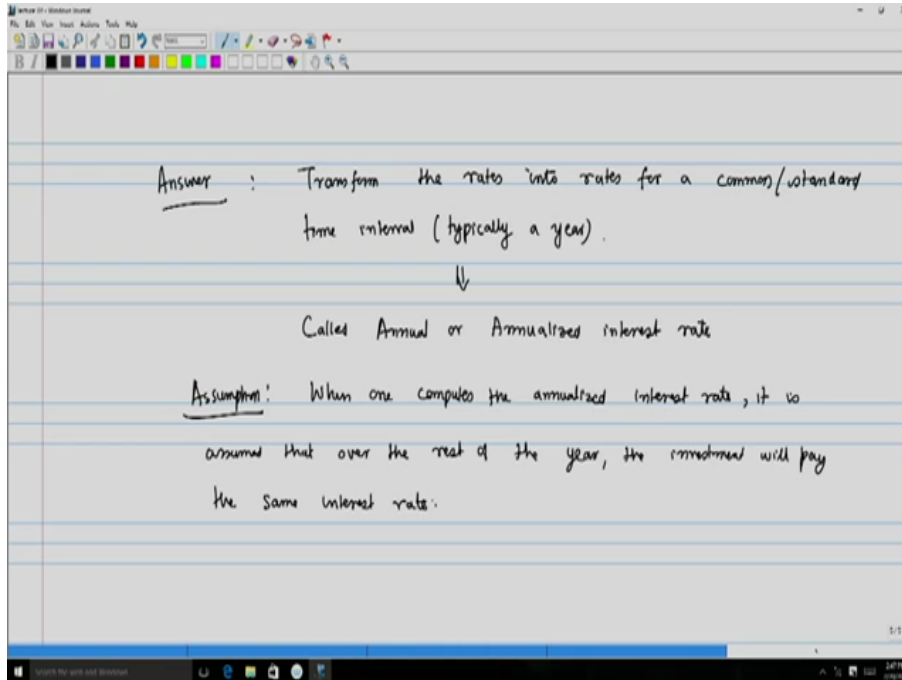 File Edit View Insert Actions Tools Help
B I
Answer : Transform the rates into rates for a common/standard
time interval (typically a year).
⇓
Called Annual or Annualized interest rate
Assumption: When one computes the annualized interest rate, it is
assumed that over the rest of the year, the investment will pay
the same interest rate.